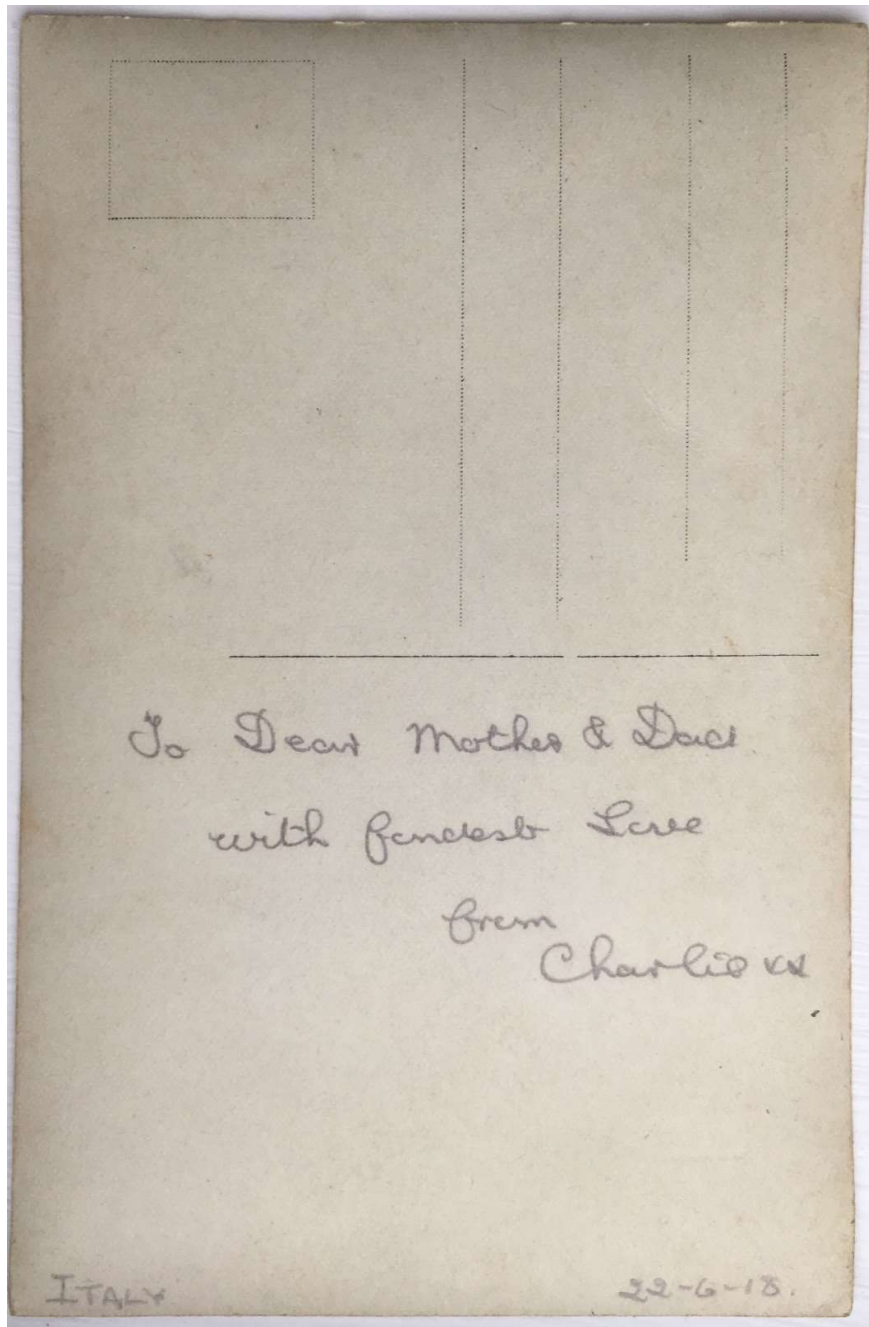 To Dear Mother & Dad.
with fondest Love
from
Charlie xx
ITALY
22-6-18.